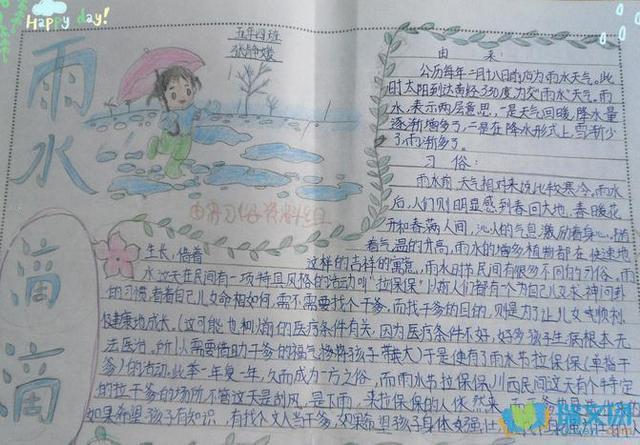 Happy day!
五年四班
张静媛
雨水
滴滴
由来
公历每年二月十八日前后为雨水天气。此
时太阳到达黄经330度为交"雨水"天气。雨
水,表示两层意思,一是天气回暖,降水量
逐渐增多了,二是在降水形式上,雪渐少
了,雨渐多了。
习俗:
雨水前,天气相对来说比较寒冷。雨水
后,人们则明显感到春回大地,春暖花
开和春满人间,沁人的气息激励着身心。随
着气温的升高,雨水的增多植物都在快速地
生长,借着
这样的吉祥的寓意,雨水时节民间有很多不同的习俗。雨
水这天在民间有一项特具风格的活动叫"拉保保"以前人们都有个为自己儿女求神问卦
的习惯,看看自己儿女命相如何,需不需要找个干爹,而找干爹的目的,则是为了让儿女或顺利
健康地成长。(这可能也和以前的医疗条件有关,因为医疗条件不好,好多孩子生病根本无
法医治。所以需要借助干爹的福气将孩子带大)于是便有了雨水节拉保保(单指干
爹)的活动。此举一年复一年,久而成为一方之俗,而雨水节拉保保,川西民间这天有个特定
的拉干爹的场所,不管这天是刮风,是下雨,来拉保保的人依然
如果希望孩子有知识,有找个文人当干爹,如果希望孩子身体好强